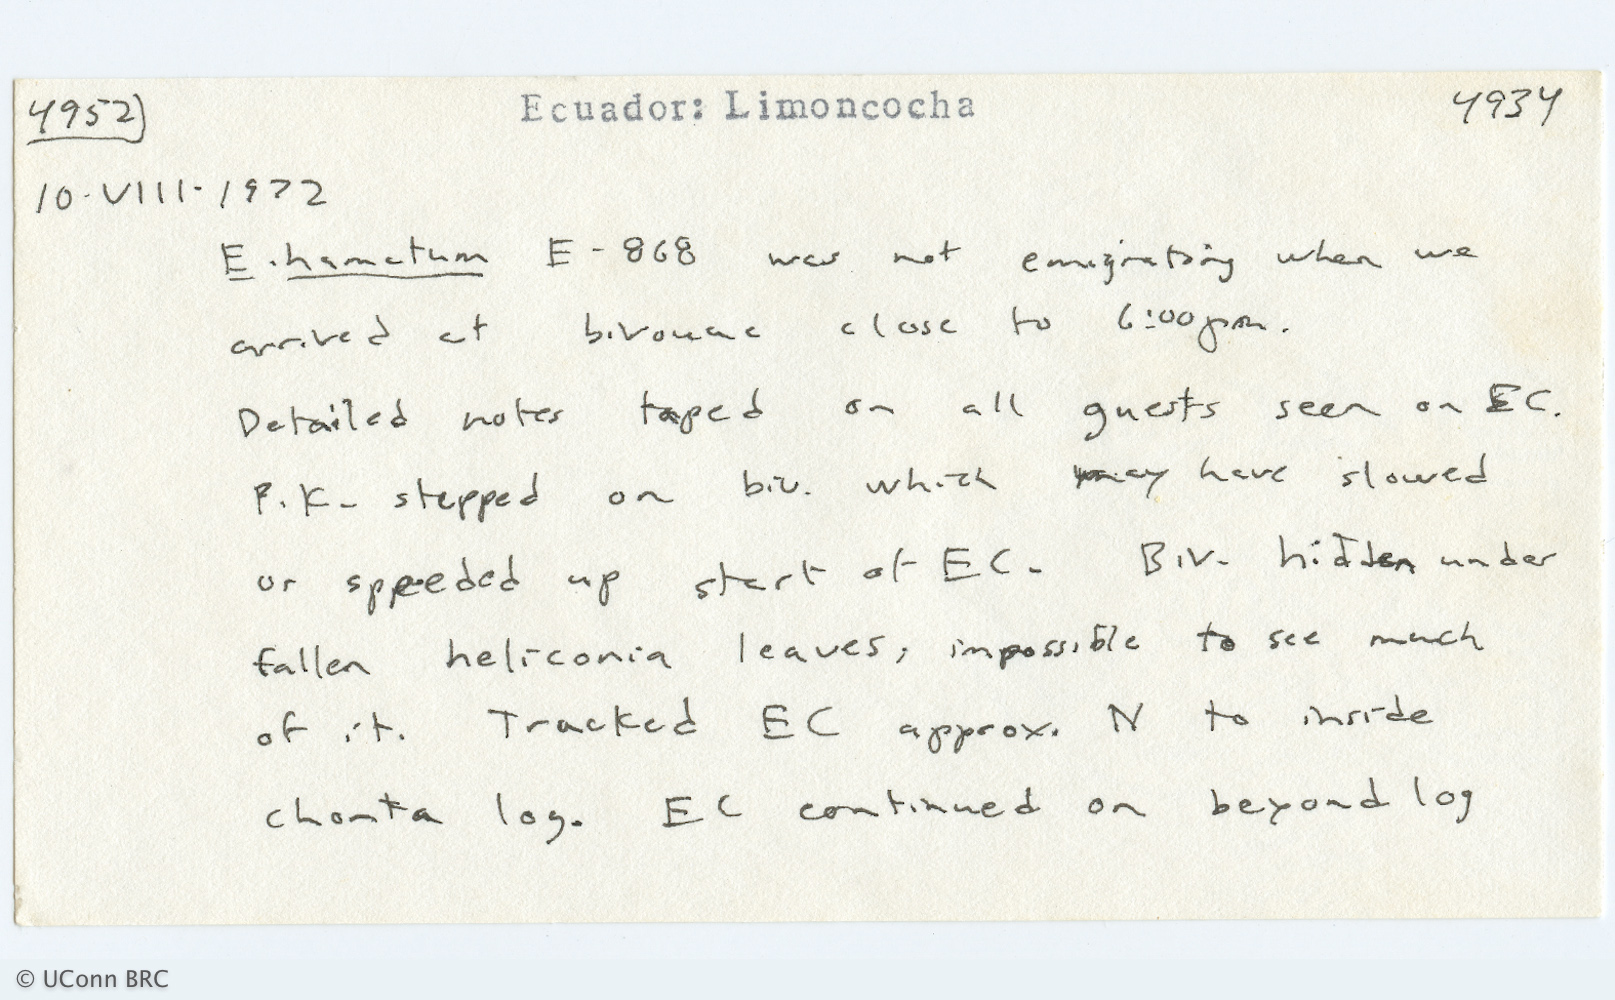 4952) Ecuador: Limoncocha 4934
10·VIII·1972
E. hamatum E-868 was not emigrating when we
arrived at bivouac close to 6:00pm.
Detailed notes taped on all guests seen on EC.
P.K. stepped on biv. which may have slowed
or speeded up start of EC. Biv. hidden under
fallen heliconia leaves, impossible to see much
of it. Tracked EC approx. N to inside
chonta log. EC continued on beyond log
© UConn BRC